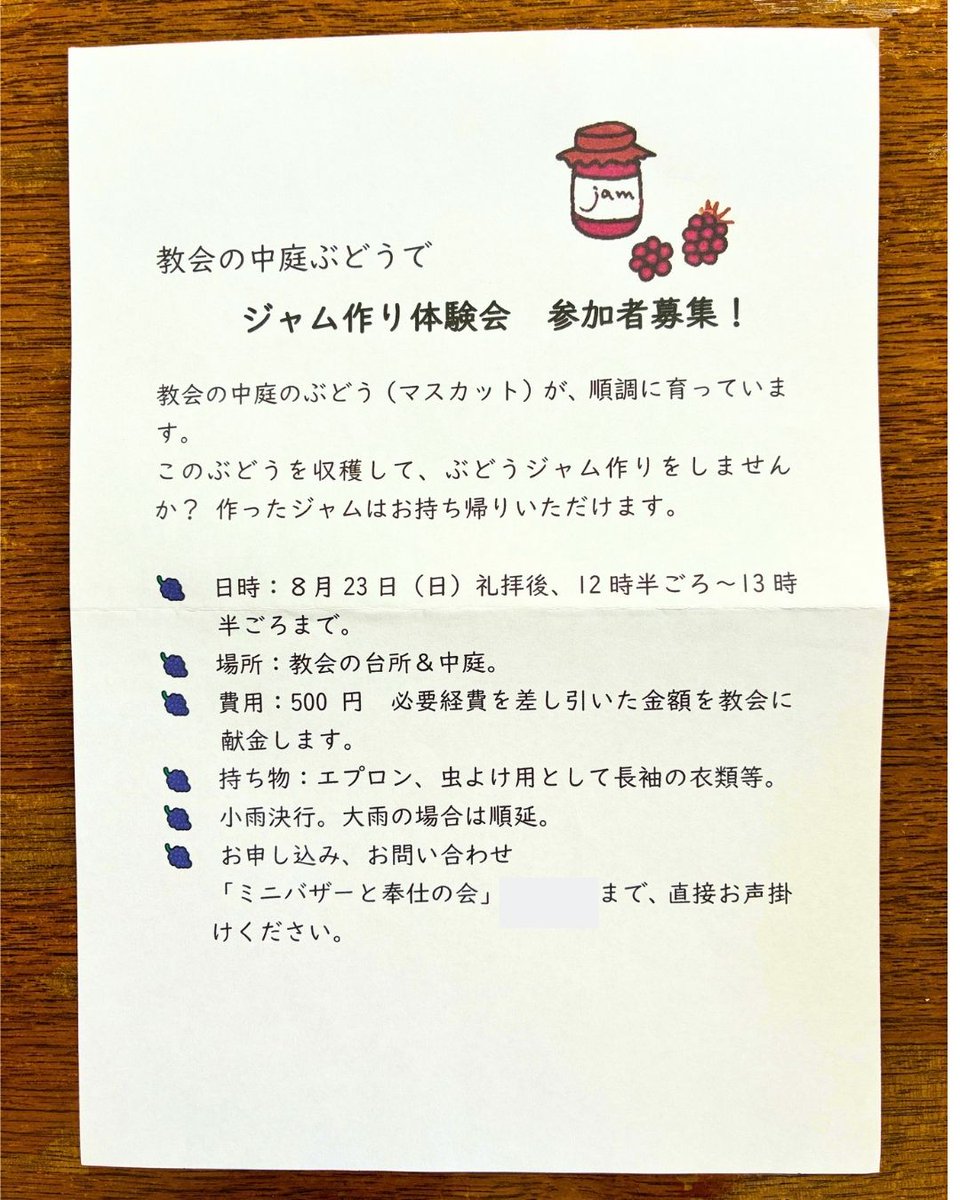 jam
教会の中庭ぶどうで
ジャム作り体験会　参加者募集！
教会の中庭のぶどう（マスカット）が、順調に育っていま
す。
このぶどうを収穫して、ぶどうジャム作りをしません
か？ 作ったジャムはお持ち帰りいただけます。
日時：８月 23 日（日）礼拝後、12 時半ごろ～13 時
半ごろまで。
場所：教会の台所＆中庭。
費用：500 円　必要経費を差し引いた金額を教会に
献金します。
持ち物：エプロン、虫よけ用として長袖の衣類等。
小雨決行。大雨の場合は順延。
お申し込み、お問い合わせ
「ミニバザーと奉仕の会」まで、直接お声掛
けください。